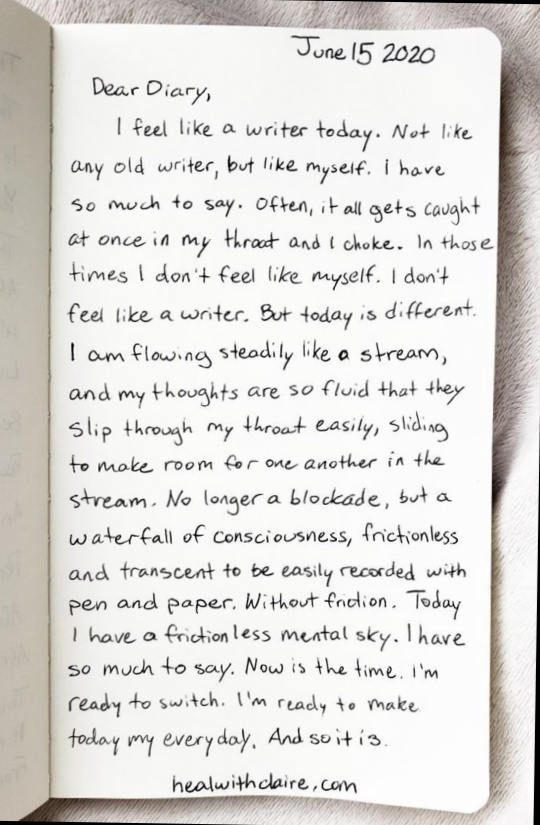 June 15 2020
Dear Diary,
I feel like a writer today. Not like
any old writer, but like myself. i have
so much to say. Often, it all gets caught
at once in my throat and I choke. In those
times I don't feel like myself. I don't
feel like a writer. But today is different.
I am flowing steadily like a stream,
and my thoughts are so fluid that they
slip through my throat easily, sliding
to make room for one another in the
stream. No longer a blockade, but a
waterfall of consciousness, frictionless
and transcent to be easily recorded with
pen and paper. Without friction. Today
I have a frictionless mental sky. I have
so much to say. Now is the time. I'm
ready to switch. I'm ready to make
today my everyday. And so it is.
healwithclaire.com